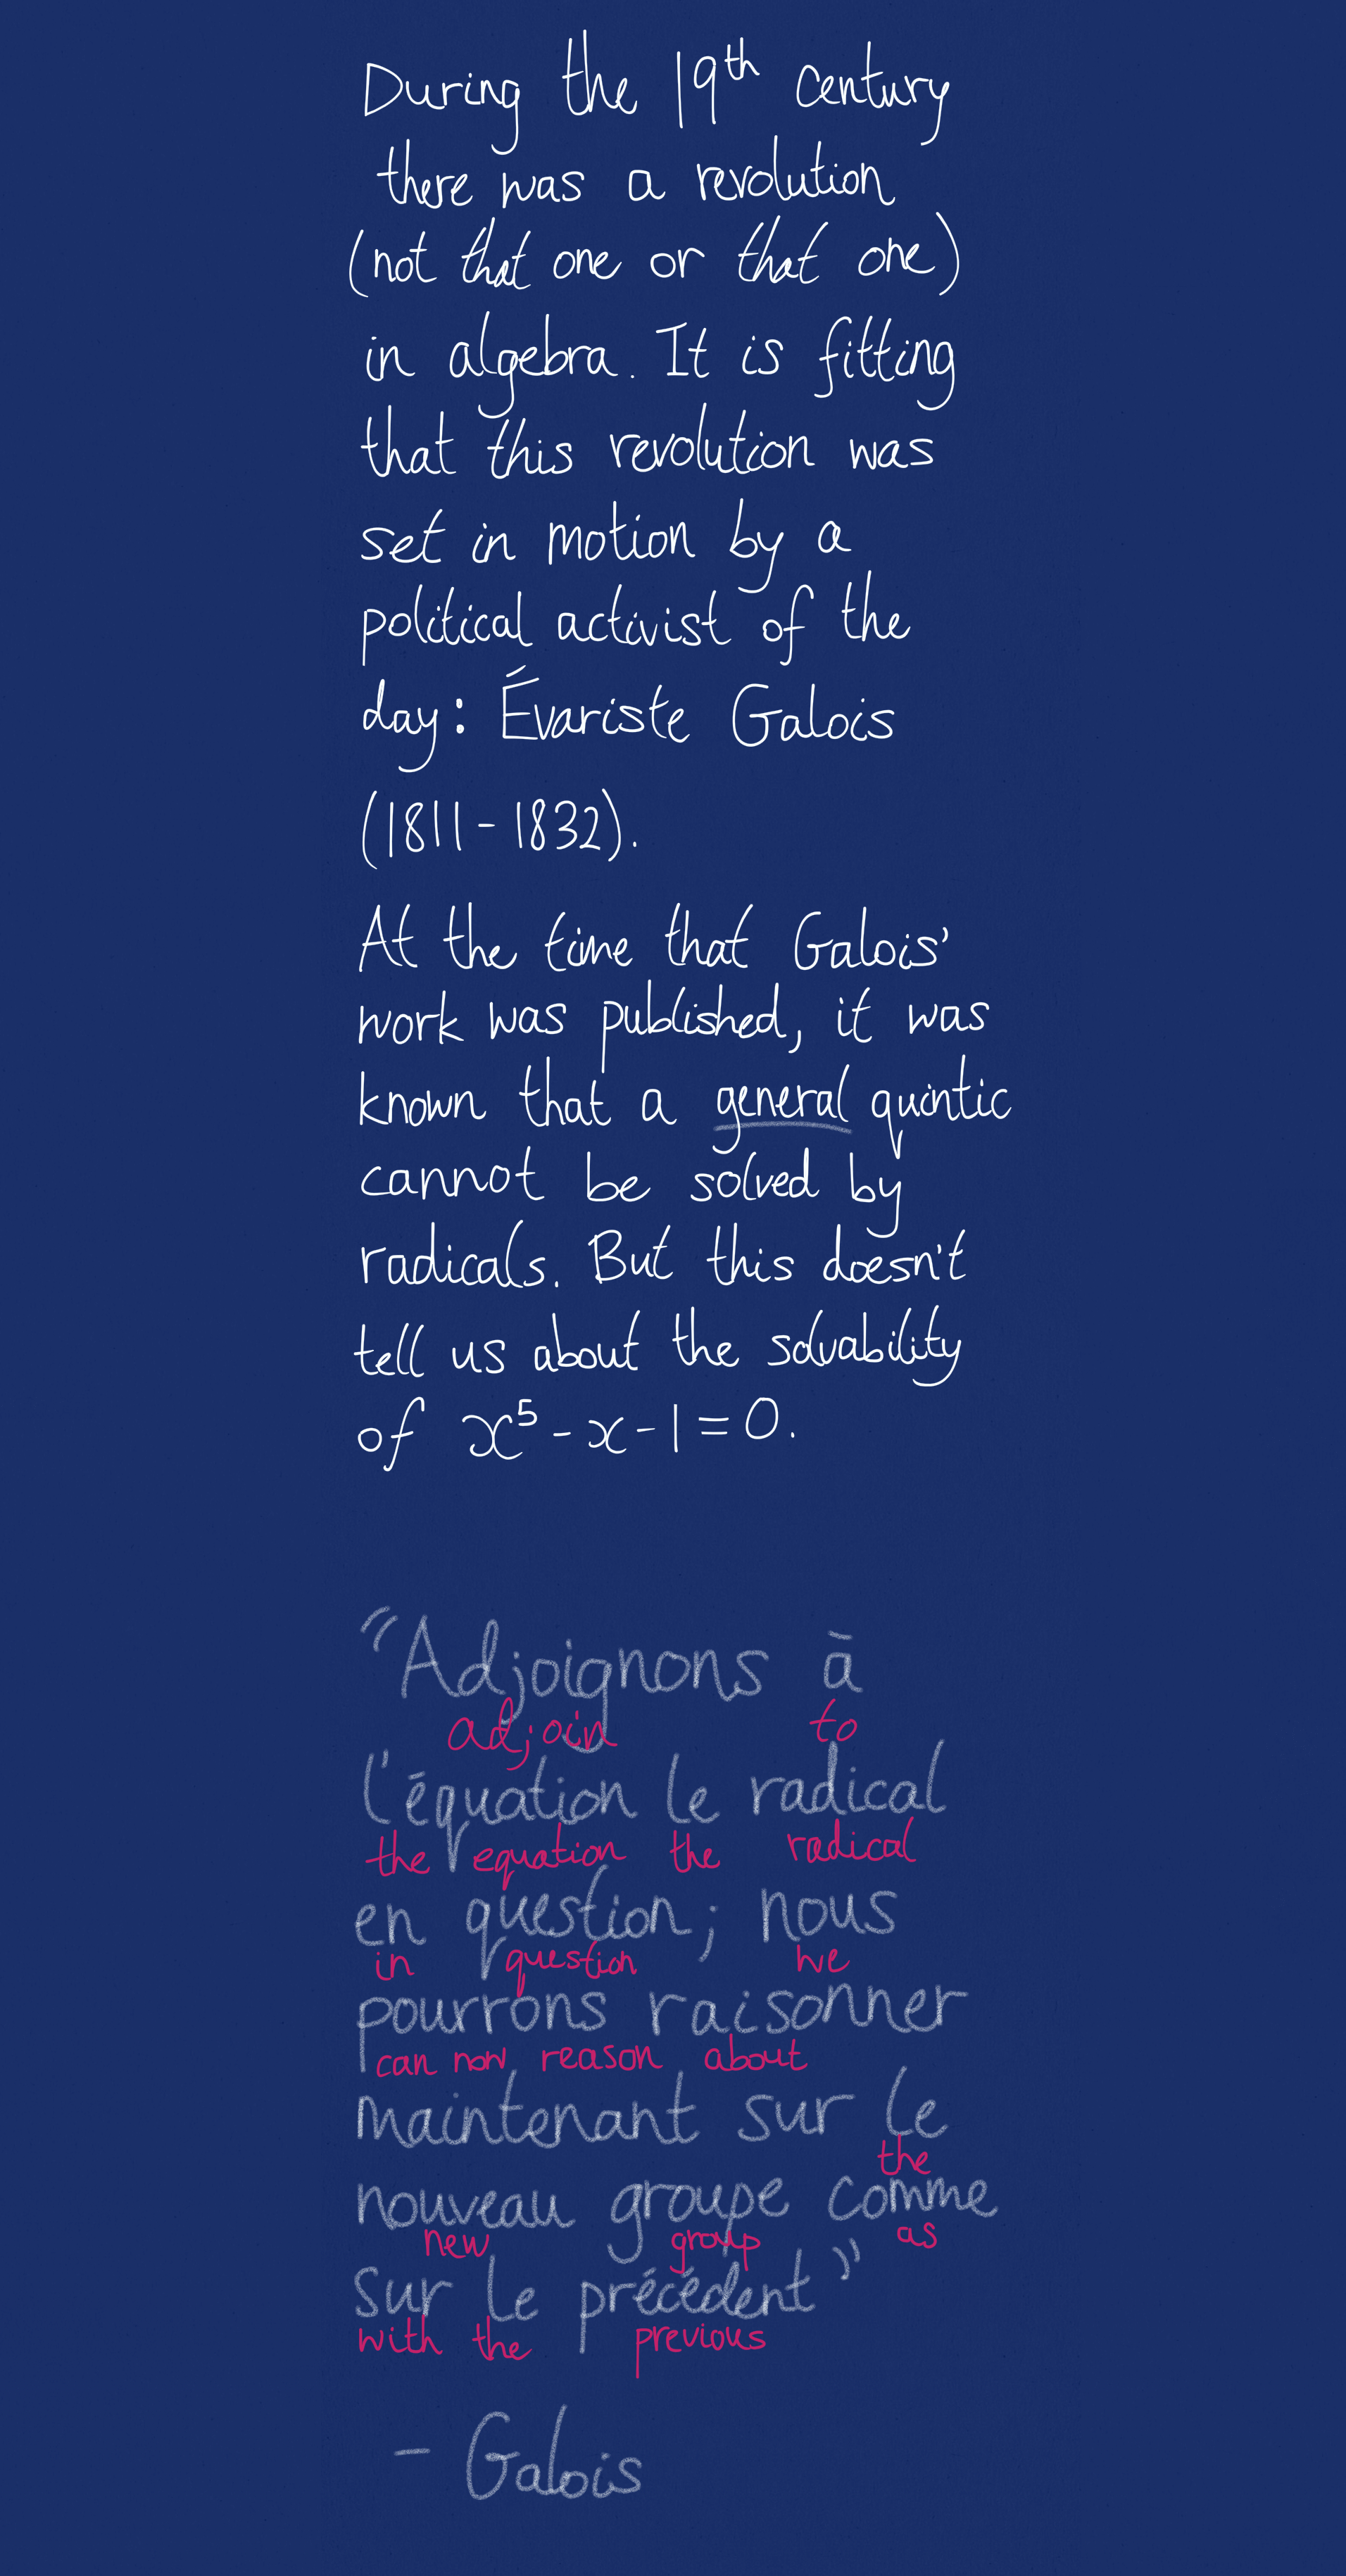 During the 19th century
there was a revolution
(not that one or that one)
in algebra. It is fitting
that this revolution was
set in motion by a
political activist of the
day: Évariste Galois
(1811-1832).
At the time that Galois'
work was published, it was
known that a general quintic
cannot be solved by
radicals. But this doesn't
tell us about the solvability
of x⁵-x-1=0.
"Adjoignons à
adjoin to
l'équation le radical
the equation the radical
en question; nous
in question we
pourrons raisonner
can now reason about
maintenant sur le
the
nouveau groupe comme
new group as
sur le précédent"
with the previous
- Galois